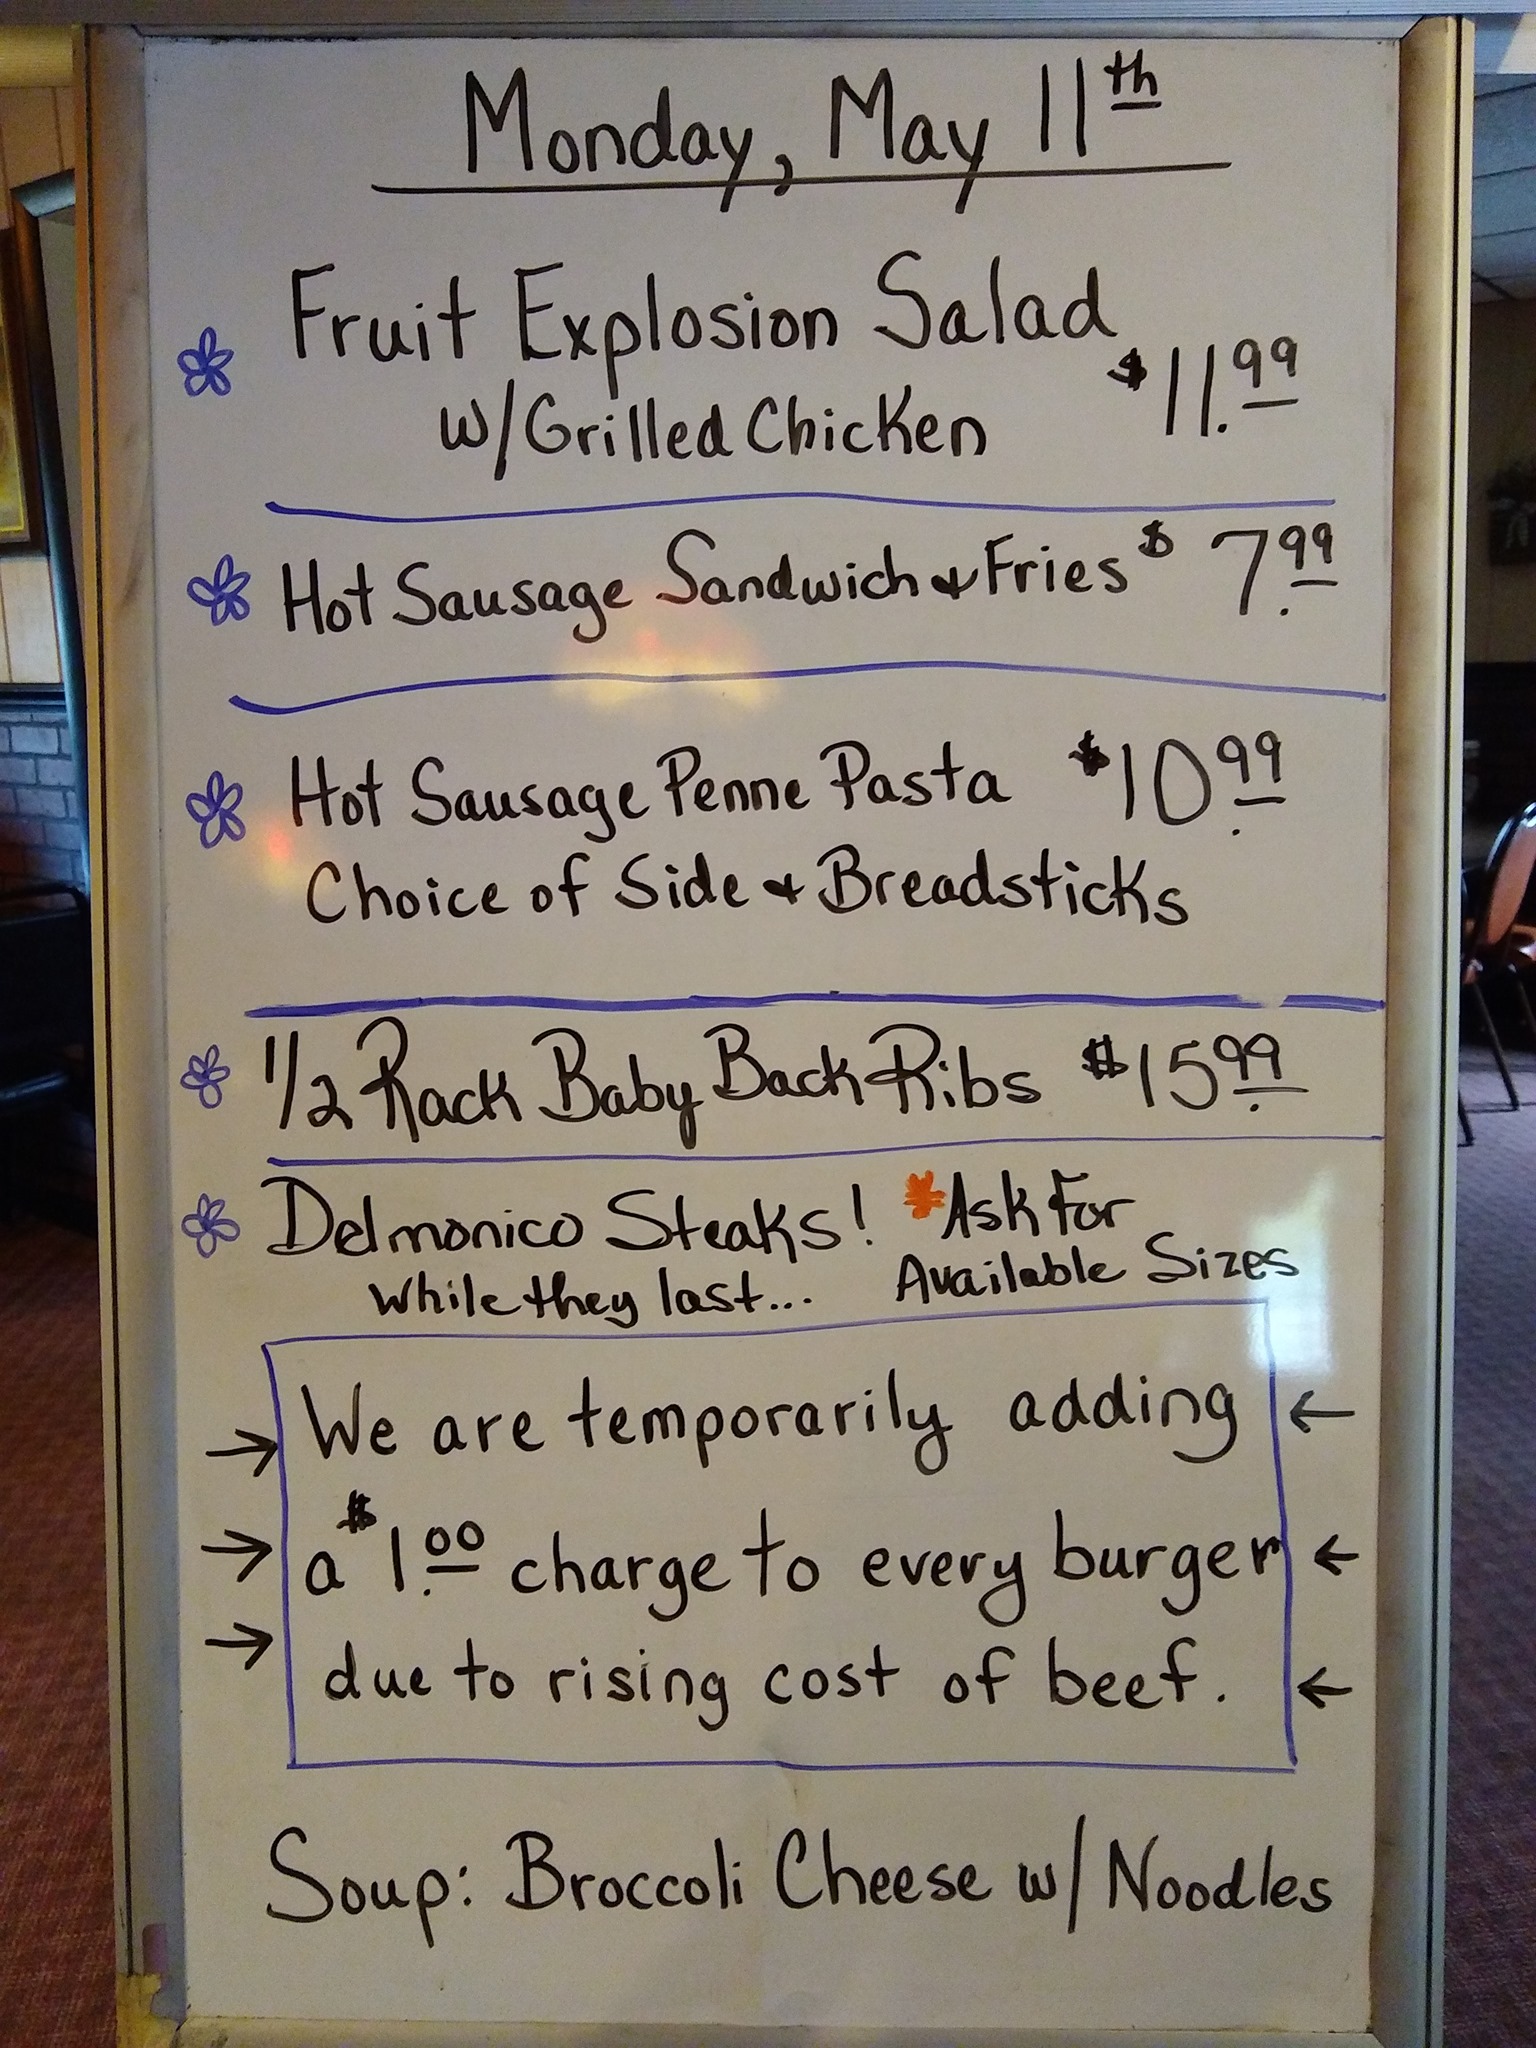 Monday, May 11th
Fruit Explosion Salad
w/Grilled Chicken $11.99
Hot Sausage Sandwich & Fries $7.99
Hot Sausage Penne Pasta $10.99
Choice of Side & Breadsticks
1/2 Rack Baby Back Ribs $15.99
Delmonico Steaks! *Ask For
While they last... Available Sizes
We are temporarily adding
a $1.00 charge to every burger
due to rising cost of beef.
Soup: Broccoli Cheese w/ Noodles